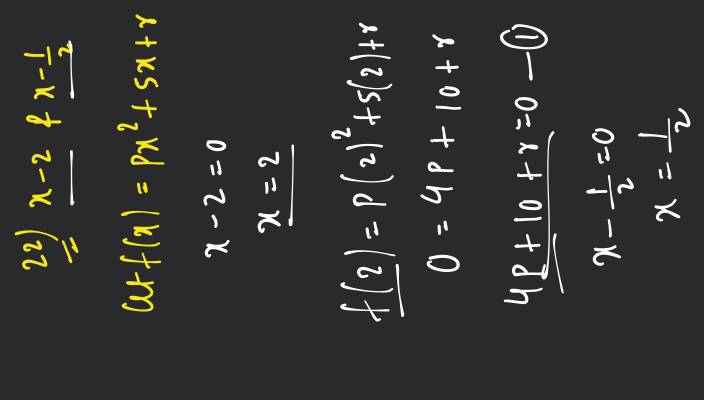 22) x-2 & x-1/2
let f(x) = px²+5x+r
x-2=0
x=2
f(2) = p(2)²+5(2)+r
0 = 4p+10+r
4p+10+r=0 —①
x-1/2=0
x=1/2